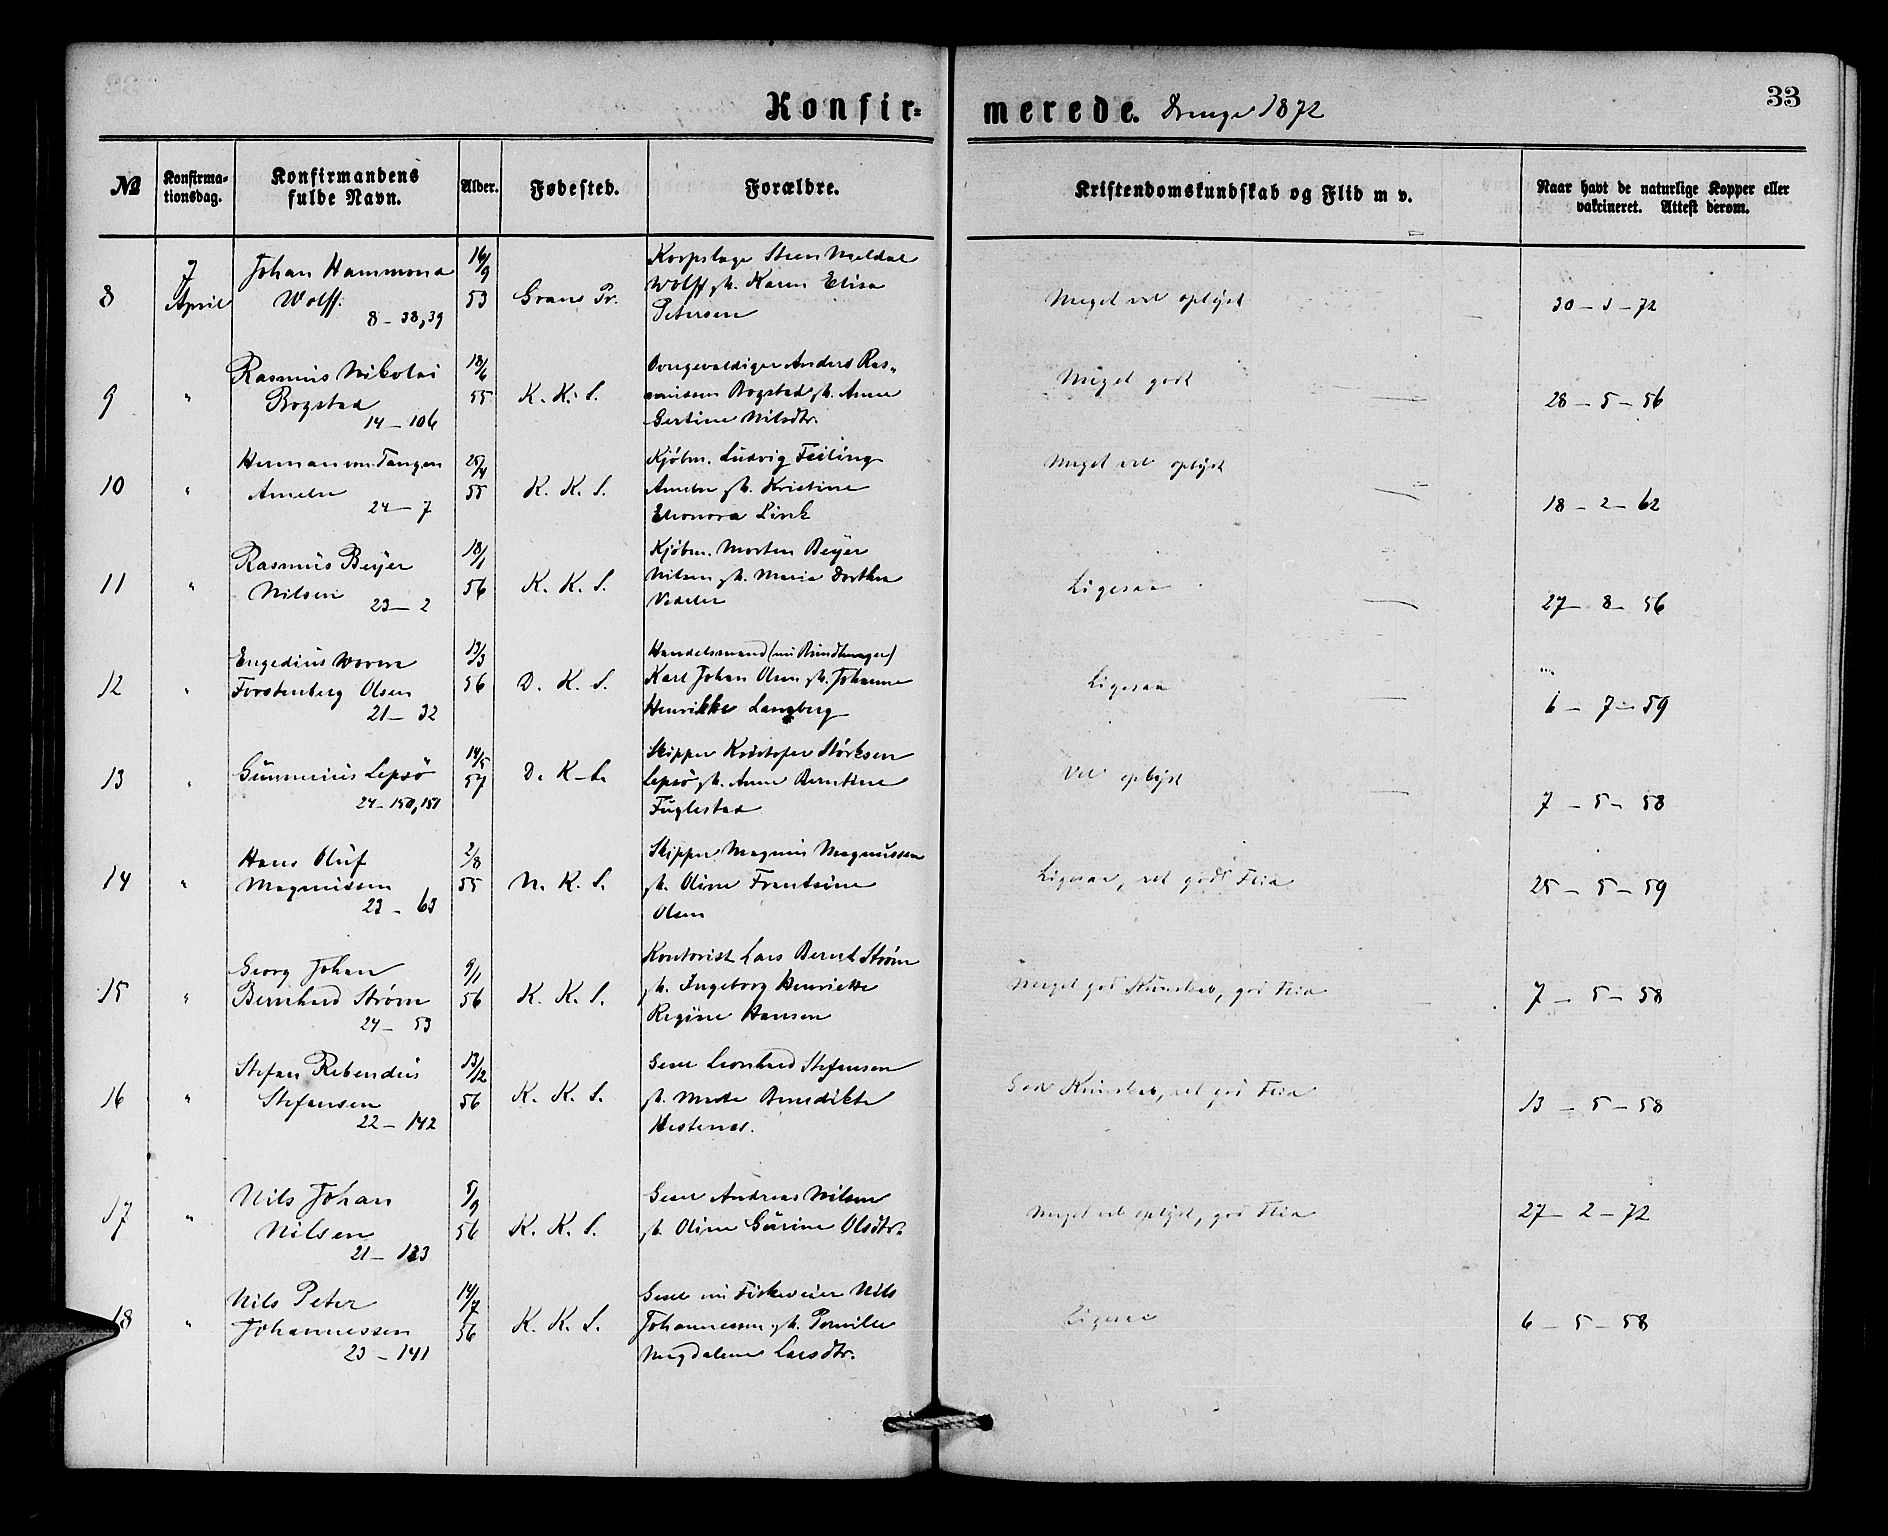 Konfir-
merede. Drenge 1872
33
№
Konfirma-
tionsdag.
Konfirmandens
fulde Navn.
Alder.
Fødested.
Forældre.
Kristendomskundskab og Flid m v.
Naar havt de naturlige Kopper eller
vakcineret. Attest derom.
8
7
April
Johan Hammond
Wolff.
8 - 38,39
16/9
53
Grans Pr.
Korpslæge Steen Meldal
Wolff gh. Karen Elisa
Petersen
Meget vel oplyst
30 - 3 - 72
9
"
Rasmus Nikolai
Bogstad
14 - 106
18/6
55
K. K. S.
Anders Ras-
mussen Bogstad gh. Anne
Gertine Nilsdtr.
Meget godt
28 - 5 - 56
10
"
Herman von Tangen
Ameln
24 - 7
25/4
55
K. K. S.
Kjøbm. Ludvig Feiling
Ameln gh. Kristine
Elionora Linck
Meget vel oplyst
18 - 2 - 62
11
"
Rasmus Beyer
Nilsen
23 - 2
18/1
56
K. K. S.
Kjøbm. Morten Beyer
Nilsen gh. Maria Dorthea
Vedeler
Ligesaa
27 - 8 - 56
12
"
Engedius Worm
Forstenberg Olsen
21 - 32
13/3
56
D. K. S.
Handelsmand (nu Bundtmager)
Karl Johan Olsen gh. Johanne
Henrikke Lamberg
Ligesaa
6 - 7 - 59
13
"
Gunnerius Lepsö
24 - 150,151
14/5
57
D. K. S.
Skipper Kristofer Störksen
Lepsö gh. Anne Berntine
Fuglestad
Vel oplyst
7 - 5 - 58
14
"
Hans Oluf
Magnussen
23 - 63
2/8
55
N. K. S.
Skipper Magnus Magnussen
gh. Oline Frantsine
Olsen
Ligesaa, vel godt Flid
25 - 5 - 59
15
"
Georg Johan
Bernhard Strøm
24 - 53
9/1
56
K. K. S.
Kontorist Lars Bernt Strøm
gh. Ingeborg Henriette
Regine Hansen
Meget god Kunskab, god Flid
7 - 5 - 58
16
"
Stefan Rebendus
Stefansen
22 - 142
13/12
56
K. K. S.
Gesel Leonhard Stefansen
gh. Mette Benedikte
Hestenes.
God Kunskab, vel god Flid
13 - 5 - 58
17
"
Nils Johan
Nilsen
21 - 123
5/9
56
K. K. S.
Gesel Andreas Nilsen
gh. Oline Gurine Olsdtr.
Meget vel oplyst, god Flid
27 - 2 - 72
18
"
Nils Peter
Johannessen
23 - 141
14/7
56
K. K. S.
Gesel nu Fiskeveier Nils
Johannessen gh. Pernille
Magdalene Larsdtr.
Ligesaa
6 - 5 - 58